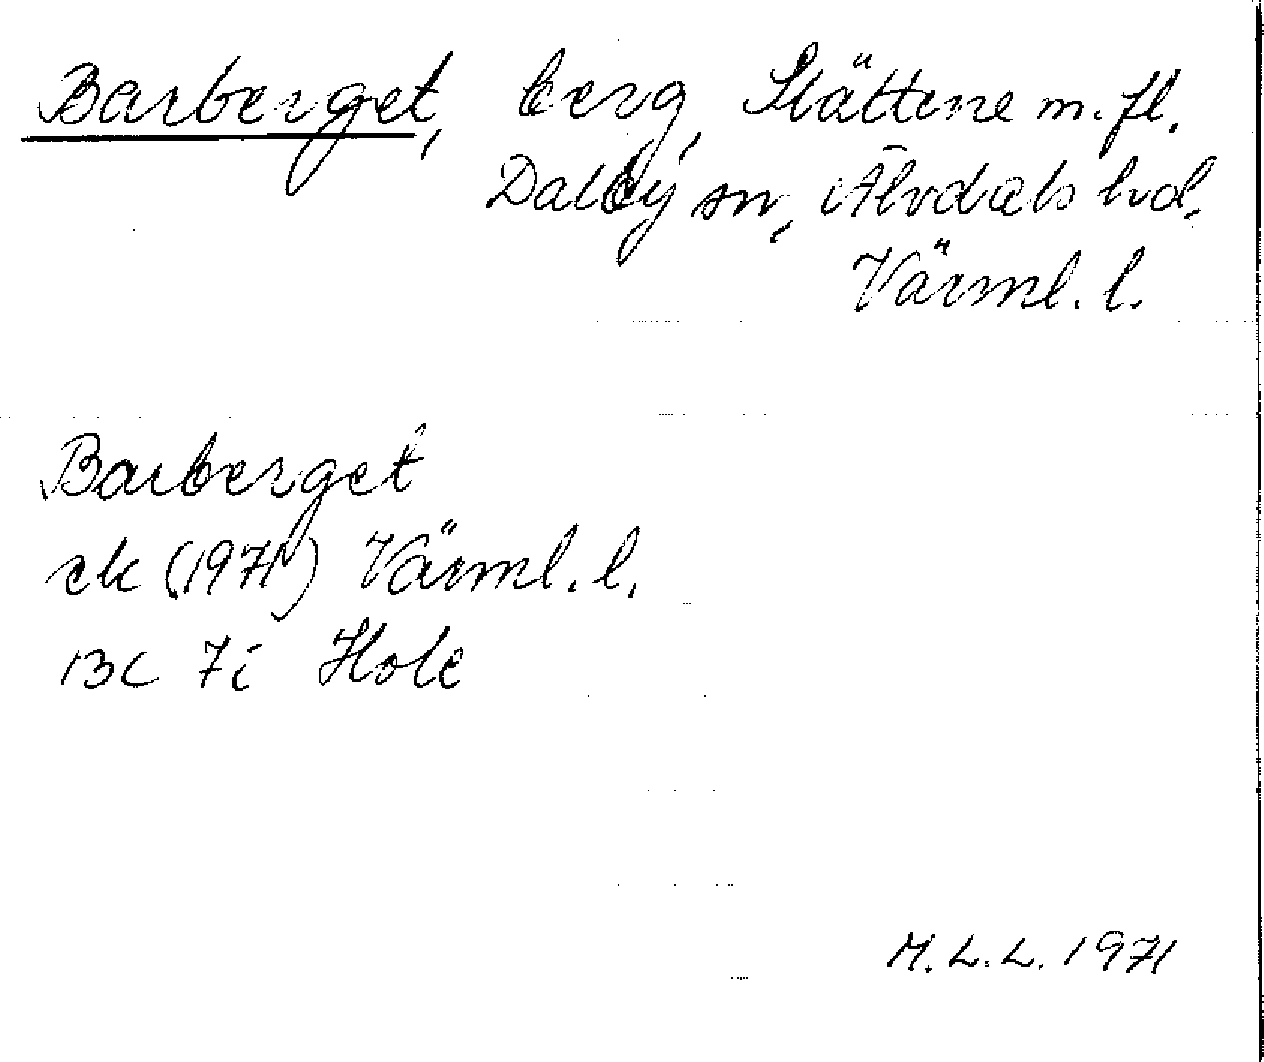 Barberget, berg, Slättene m.fl.
Dalby sn, Älvdals hd,
Värml. l.
Barberget
ek (1971) Värml. l.
13C 7i Hole
M.L.L. 1971